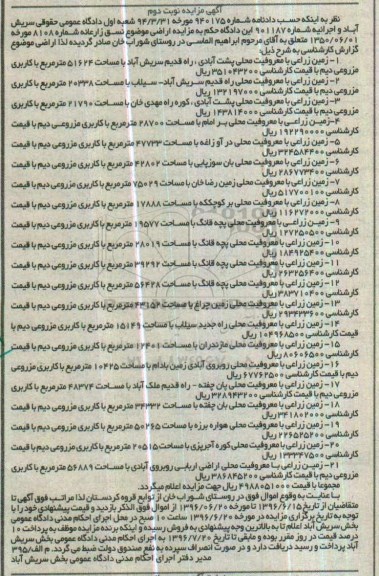 آگهی مزایده نوبت دوم
نظر به اینکه حسب دادنامه شماره ۹۴۰۱۷۵ مورخه ۹۴/۳/۳۱ شعبه اول دادگاه عمومی حقوقی سریش
آباد و اجرائیه شماره ۹۰۱۱۸۷ این دادگاه حکم به مزایده اراضی موضوع نسق زارعانه شماره ۸۱۰۸ مورخه
۱۳۵۰/۰۶/۰۱ متعلق به آقای مرحوم ابراهیم الماسی در روستای شوراب خان صادر گردیده لذا اراضی موضوع
گزارش کارشناسی به شرح ذیل:
۱- زمین زراعی با معروفیت محلی پشت آبادی ، راه قدیم سریش آباد با مساحت ۵۱۶۲۴ مترمربع با کاربری
مزروعی دیم با قیمت کارشناسی ۳۵۱۰۴۳۲۰۰ ریال
۲- زمین زراعی با معروفیت محلی راه قدیم سریش آباد- سیلاب با مساحت ۲۰۳۳۸ مترمربع با کاربری
مزروعی دیم با قیمت کارشناسی ۱۳۲۱۹۷۰۰۰ ریال
۳- زمین زراعی با معروفیت محلی پشت آبادی ، کوره راه مهدی خان با مساحت ۲۱۷۹۰ مترمربع با کاربری
مزروعی دیم با قیمت کارشناسی ۱۴۳۸۱۴۰۰۰ ریال
۴- زمین زراعی با معروفیت محلی بر امام با مساحت ۲۸۷۰۰ مترمربع با کاربری مزروعی دیم با قیمت
کارشناسی ۱۹۲۲۹۰۰۰۰ ریال
۵- زمین زراعی با معروفیت محلی در آو زاغه با مساحت ۴۷۷۳۳ مترمربع با کاربری مزروعی دیم با قیمت
کارشناسی ۳۲۴۵۸۴۴۰۰ ریال
۶- زمین زراعی با معروفیت محلی بان سوزیایی با مساحت ۴۲۸۰۲ مترمربع با کاربری مزروعی دیم با قیمت
کارشناسی ۲۸۶۷۷۳۴۰۰ ریال
۷- زمین زراعی با معروفیت محلی زمین رضا خان با مساحت ۷۵۰۲۹ مترمربع با کاربری مزروعی دیم با قیمت
کارشناسی ۵۱۷۷۰۰۱۰۰ ریال
۸- زمین زراعی با معروفیت محلی بر کوچککه با مساحت ۱۷۸۸۸ مترمربع با کاربری مزروعی دیم با قیمت
کارشناسی ۱۱۶۲۷۲۰۰۰ ریال
۹- زمین زراعی با معروفیت محلی پچه قانگ با مساحت ۱۹۵۷۷ مترمربع با کاربری مزروعی دیم با قیمت
کارشناسی ۱۲۷۲۵۰۵۰۰ ریال
۱۰- زمین زراعی با معروفیت محلی پچه قانگ با مساحت ۲۸۰۱۹ مترمربع با کاربری مزروعی دیم با قیمت
کارشناسی ۱۸۴۹۲۵۴۰۰ ریال
۱۱- زمین زراعی با معروفیت محلی پچه قانگ با مساحت ۳۹۲۹۲ مترمربع با کاربری مزروعی دیم با قیمت
کارشناسی ۲۶۳۲۵۶۴۰۰ ریال
۱۲- زمین زراعی با معروفیت محلی پچه قانگ با مساحت ۵۶۴۲۸ مترمربع با کاربری مزروعی دیم با قیمت
کارشناسی ۳۸۳۷۱۰۴۰۰ ریال
۱۳- زمین زراعی با معروفیت محلی زمین چراغ با مساحت ۴۳۱۵۲ مترمربع با کاربری مزروعی دیم با قیمت
کارشناسی ۲۹۳۴۳۳۶۰۰ ریال
۱۴- زمین زراعی با معروفیت محلی راه جدید سیلاب با مساحت ۱۵۱۴۹ مترمربع با کاربری مزروعی دیم با
قیمت کارشناسی ۱۰۴۹۶۸۵۰۰ ریال
۱۵- زمین زراعی با معروفیت محلی مازندران با مساحت ۱۲۴۰۱ مترمربع با کاربری مزروعی دیم با قیمت
کارشناسی ۸۰۶۰۶۵۰۰ ریال
۱۶- زمین زراعی با معروفیت محلی روبروی آبادی زمین بادام با مساحت ۱۰۴۲۵ مترمربع با کاربری مزروعی
دیم با قیمت کارشناسی ۶۷۷۶۲۵۰۰ ریال
۱۷- زمین زراعی با معروفیت محلی بان چفته - راه قدیم ملک آباد با مساحت ۴۸۳۷۴ مترمربع با کاربری
مزروعی دیم با قیمت کارشناسی ۳۲۸۹۴۳۲۰۰ ریال
۱۸- زمین زراعی با معروفیت محلی بان چفته با مساحت ۳۴۳۳۲ مترمربع با کاربری مزروعی دیم با قیمت
کارشناسی ۳۴۱۸۰۲۴۰۰ ریال
۱۹- زمین زراعی با معروفیت محلی هواره برزه با مساحت ۵۰۲۶۵ مترمربع با کاربری مزروعی دیم با قیمت
کارشناسی ۲۲۶۵۲۵۲۰۰ ریال
۲۰- زمین زراعی با معروفیت محلی کوره آجرپزی با مساحت ۲۰۵۱۵ مترمربع با کاربری مزروعی دیم با قیمت
کارشناسی ۱۳۳۳۴۷۵۰۰ ریال
۲۱- زمین زراعی با معروفیت محلی اراضی اربابی روبروی آبادی با مساحت ۵۶۸۸۹ مترمربع با کاربری
مزروعی دیم با قیمت کارشناسی ۳۸۶۸۴۵۲۰۰ ریال
مجموعا با قیمت ۴۹۸۸۰۵۱۰۰۰ ریال جهت مزایده اعلام میگردد.
با عنایت به وقوع اموال فوق در روستای شوراب خان از توابع قروه کردستان لذا مراتب فوق آگهی تا
متقاضیان از تاریخ ۱۳۹۶/۶/۱۵ تا مورخه ۱۳۹۶/۰۶/۲۰ از اموال فوق الذکر بازدید و قیمت پیشنهادی خود را با
توجه به تاریخ برگزاری مزایده در مورخه ۱۳۹۶/۶/۲۰ ساعت ۱۰ صبح در محل اجرای احکام مدنی دادگاه عمومی
بخش سریش آباد اعلام تا به بالاترین وجه پیشنهادی به فروش رسیده و اینکه برنده مزایده موظف به پرداخت ۱۰
درصد قیمت در روز مقرر بوده و مابقی تا تاریخ ۱۳۹۶/۷/۲۰ به اجرای احکام مدنی دادگاه عمومی بخش سریش
آباد پرداخت و رسید دریافت دارد و در صورت انصراف سپرده به نفع صندوق دولت ضبط می گردد. م الف/۳۹۵
مدیر دفتر اجرای احکام مدنی دادگاه عمومی بخش سریش آباد